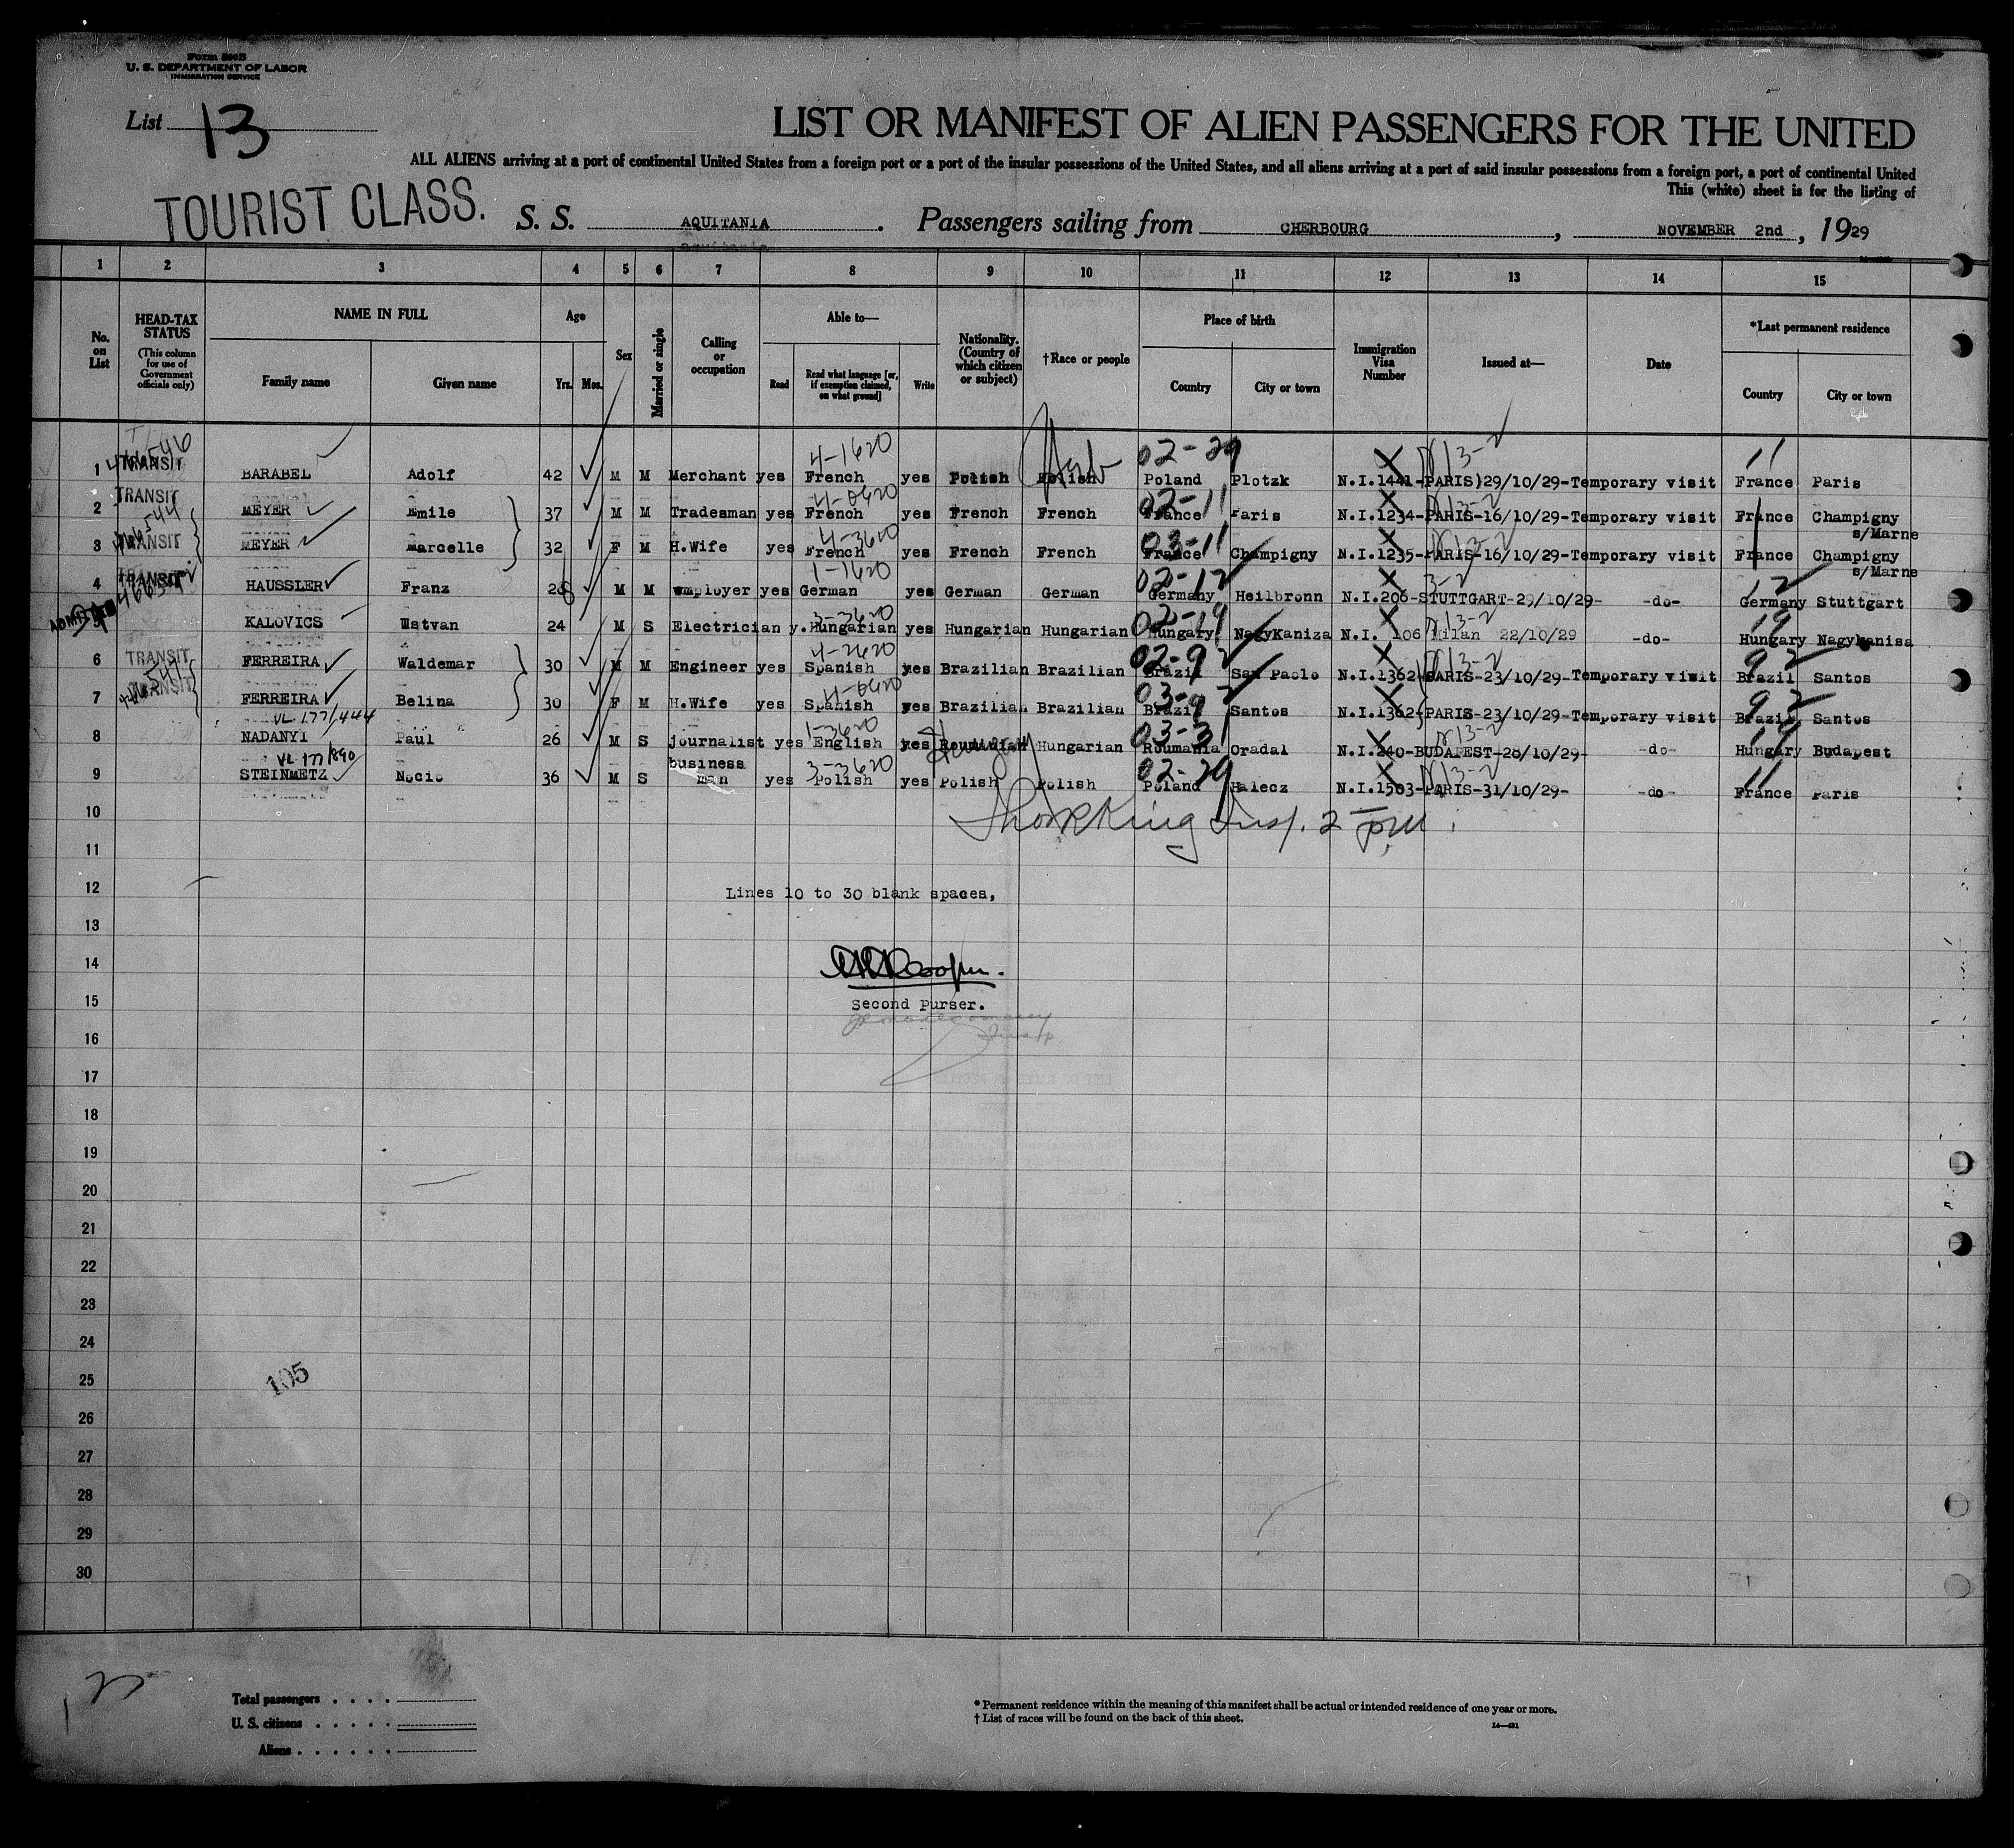 Form 500B
U. S. DEPARTMENT OF LABOR
IMMIGRATION SERVICE
List 13
LIST OR MANIFEST OF ALIEN PASSENGERS FOR THE UNITED
ALL ALIENS arriving at a port of continental United States from a foreign port or a port of the insular possessions of the United States, and all aliens arriving at a port of said insular possessions from a foreign port, a port of continental United
This (white) sheet is for the listing of
TOURIST CLASS. S. S. AQUITANIA. Passengers sailing from CHERBOURG, NOVEMBER 2nd, 1929
1 2 3 4 5 6 7 8 9 10 11 12 13 14 15
No. on List
HEAD-TAX STATUS (This column for use of Government officials only)
NAME IN FULL
Family name Given name
Age
Yrs. Mos.
Sex
Married or single
Calling or occupation
Able to—
Read Read what language [or, if exemption claimed, on what ground] Write
Nationality. (Country of which citizen or subject)
†Race or people
Place of birth
Country City or town
Immigration Visa Number
Issued at—
Date
*Last permanent residence
Country City or town
4-1620 02-29 13-2 11
1 TRANSIT BARABEL Adolf 42 M M Merchant yes French yes Polish Polish Poland Plotzk N.I.1441-PARIS)29/10/29-Temporary visit France Paris
4-0620 02-11 13-2
2 TRANSIT MEYER Emile 37 M M Tradesman yes French yes French French France Paris N.I.1234-PARIS-16/10/29-Temporary visit France Champigny s/Marne
4-3620 03-11 13-2
3 TRANSIT MEYER Marcelle 32 F M H.Wife yes French yes French French France Champigny N.I.1235-PARIS-16/10/29-Temporary visit France Champigny s/Marne
1-1620 02-12 3-2 12
4 TRANSIT HAUSSLER Franz 28 M M Employer yes German yes German German Germany Heilbronn N.I.206-STUTTGART-29/10/29- -do- Germany Stuttgart
3-3620 02-19 13-2 19
5 KALOVICS Istvan 24 M S Electrician y. Hungarian yes Hungarian Hungarian Hungary NagyKaniza N.I. 106 Milan 22/10/29 -do- Hungary Nagykanisa
4-2620 02-9 13-2 92
6 TRANSIT FERREIRA Waldemar 30 M M Engineer yes Spanish yes Brazilian Brazilian Brazil San Paolo N.I.1362-PARIS-23/10/29-Temporary visit Brazil Santos
4-0620 03-9 92
7 TRANSIT FERREIRA Belina 30 F M H.Wife yes Spanish yes Brazilian Brazilian Brazil Santos N.I.1362-PARIS-23/10/29-Temporary visit Brazil Santos
VL 177/444 1-3620 03-31 13-2 19
8 NADANYI Paul 26 M S journalist yes English yes Roumanian Hungarian Roumania Oradal N.I.240-BUDAPEST-28/10/29- -do- Hungary Budapest
VL 177/890 3-3620 02-29 13-2 11
9 STEINMETZ Nocio 36 M S business man yes Polish yes Polish Polish Poland Halecz N.I.1503-PARIS-31/10/29- -do- France Paris
10
11
12 Lines 10 to 30 blank spaces,
13
14
15 Second Purser.
16
17
18
19
20
21
22
23
24
25 105
26
27
28
29
30
Total passengers
U. S. citizens
Aliens
* Permanent residence within the meaning of this manifest shall be actual or intended residence of one year or more.
† List of races will be found on the back of this sheet.